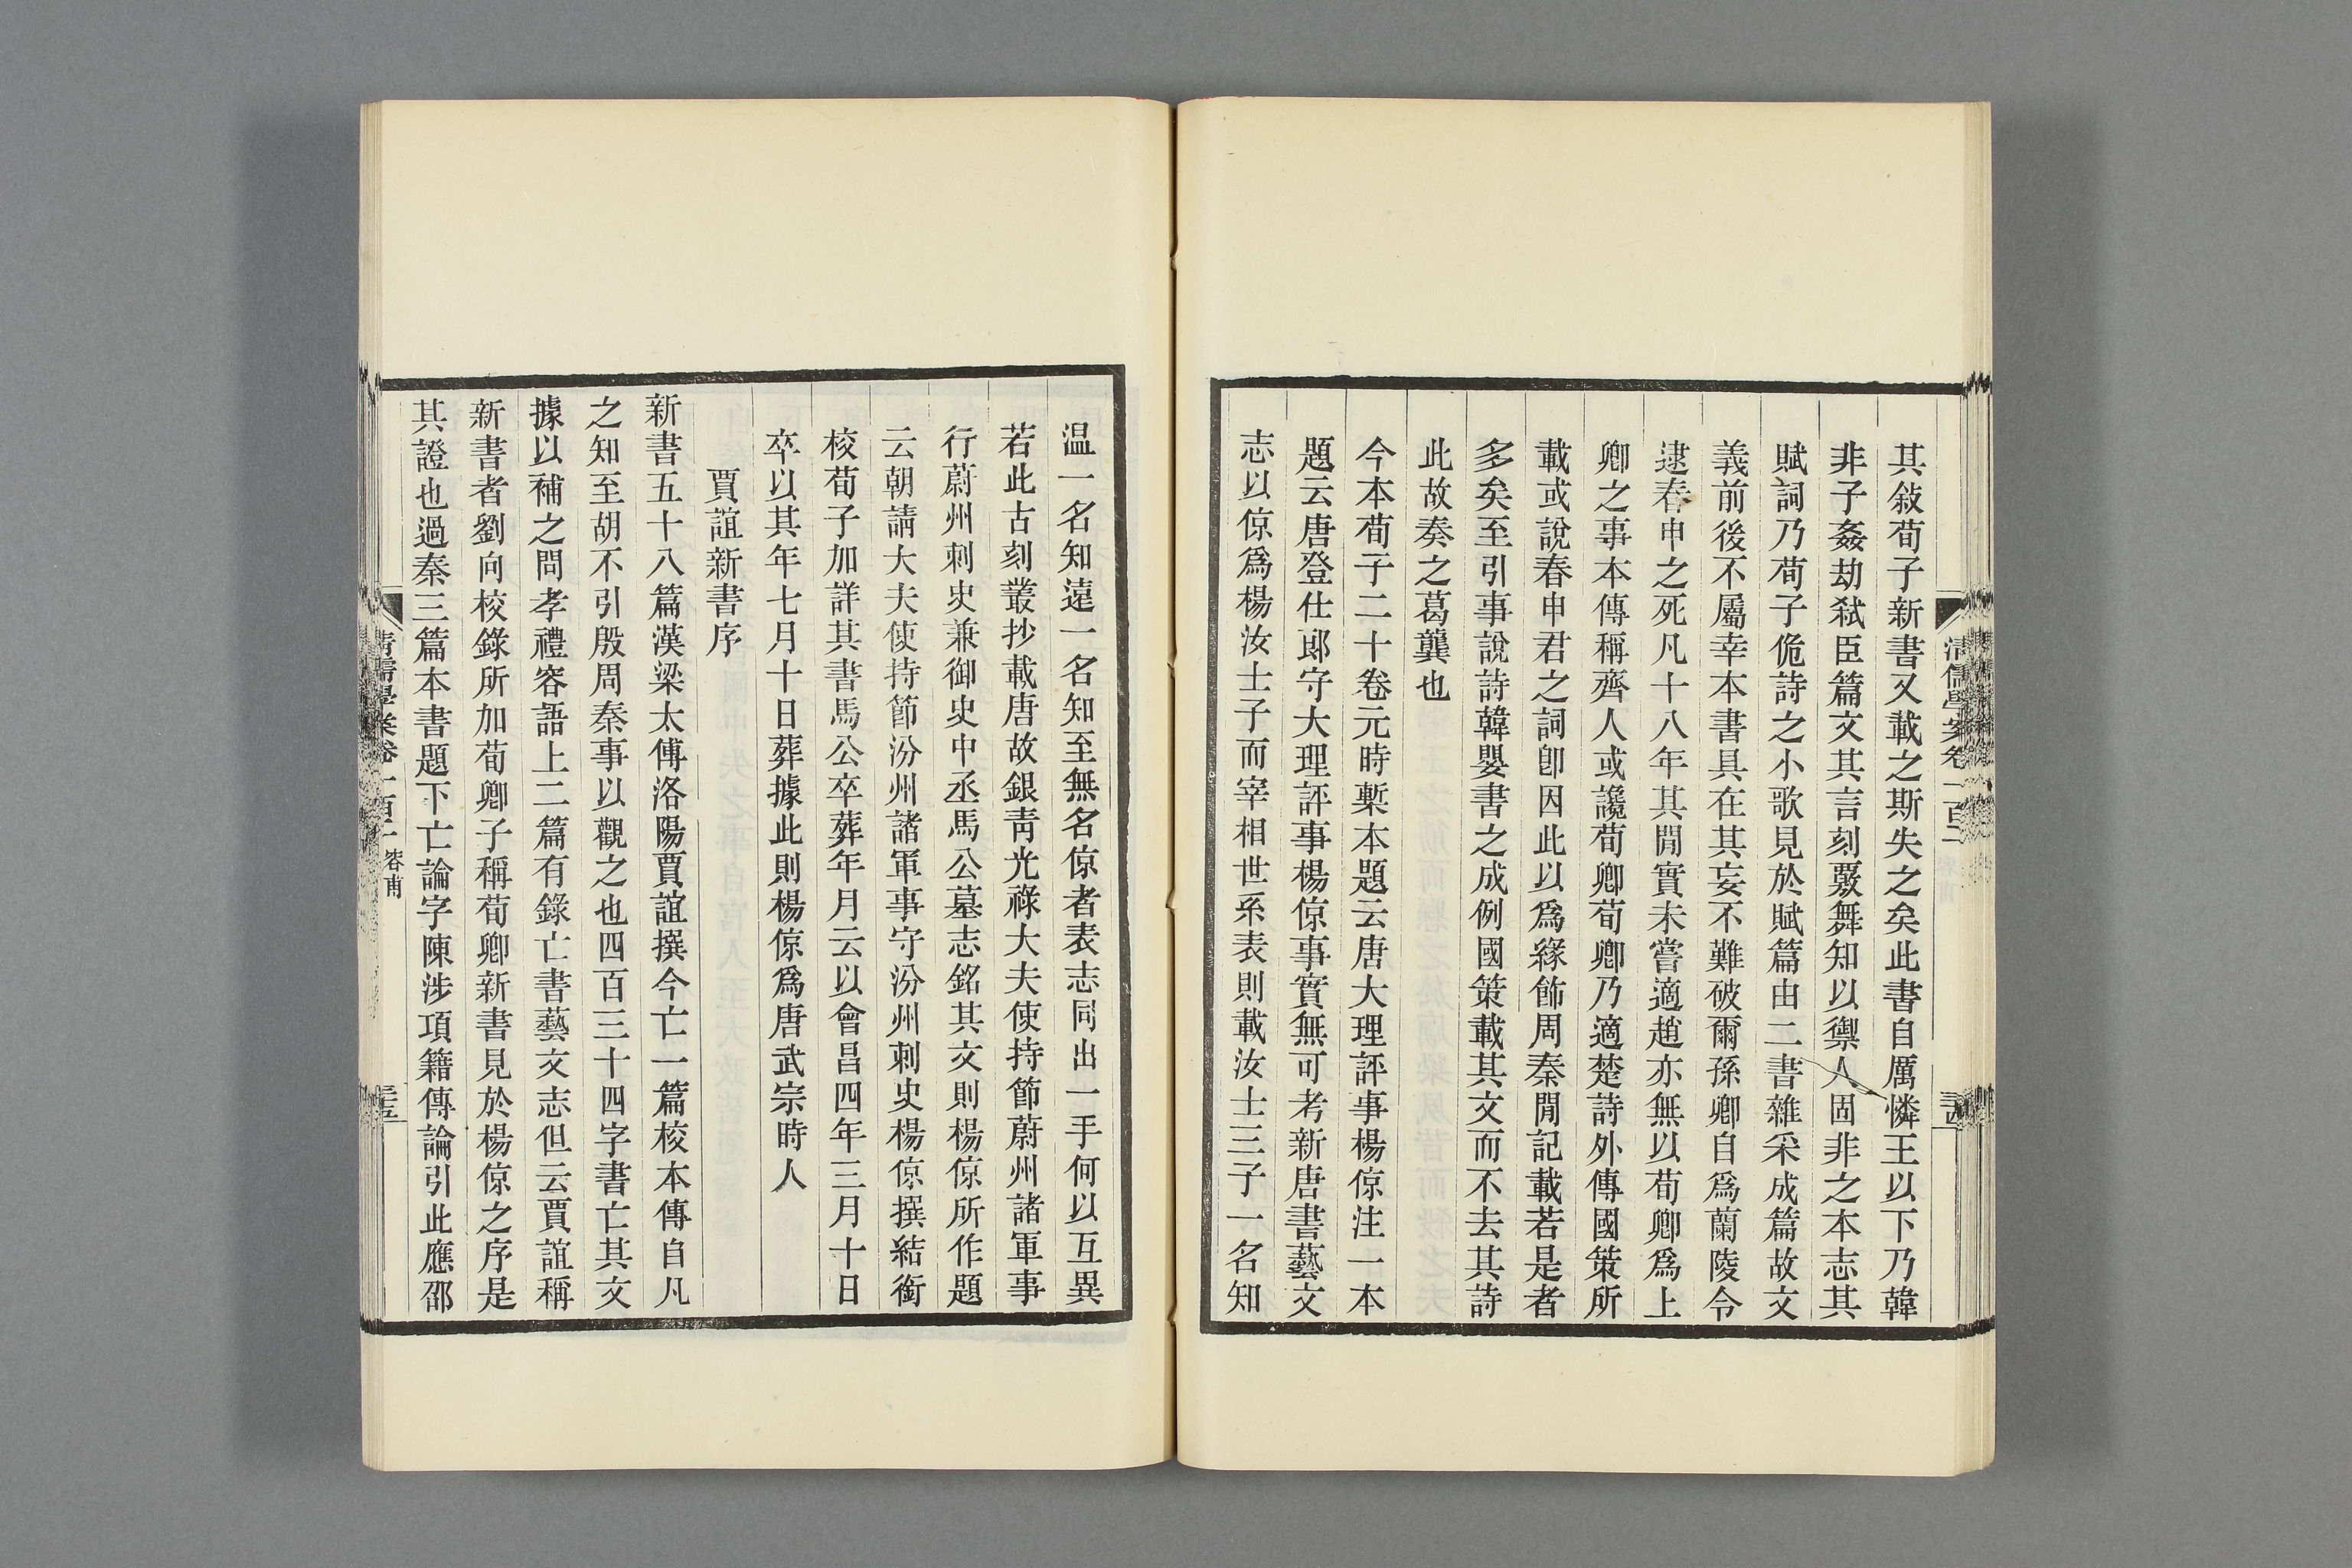 清儒學案卷一百二
三四
其敍荀子新書又載之斯失之矣此書自厲憐王以下乃韓
非子姦劫弒臣篇文其言刻覈舞知以禦人固非之本志其
賦詞乃荀子佹詩之小歌見於賦篇由二書雜采成篇故文
義前後不屬幸本書具在其妄不難破爾孫卿自爲蘭陵令
逮春申之死凡十八年其閒實未嘗適趙亦無以荀卿爲上
卿之事本傳稱齊人或讒荀卿荀卿乃適楚詩外傳國策所
載或說春申君之詞卽因此以爲緣飾周秦閒記載若是者
多矣至引事說詩韓嬰書之成例國策載其文而不去其詩
此故奏之葛龔也
今本荀子二十卷元時槧本題云唐大理評事楊倞注一本
題云唐登仕郎守大理評事楊倞事實無可考新唐書藝文
志以倞爲楊汝士子而宰相世系表則載汝士三子一名知
温一名知遠一名知至無名倞者表志同出一手何以互異
若此古刻叢抄載唐故銀青光祿大夫使持節蔚州諸軍事
行蔚州刺史兼御史中丞馬公墓志銘其文則楊倞所作題
云朝請大夫使持節汾州諸軍事守汾州刺史楊倞撰結銜
校荀子加詳其書馬公卒葬年月云以會昌四年三月十日
卒以其年七月十日葬據此則楊倞爲唐武宗時人
賈誼新書序
新書五十八篇漢梁太傅洛陽賈誼撰今亡一篇校本傳自凡
之知至胡不引殷周秦事以觀之也四百三十四字書亡其文
據以補之問孝禮容語上二篇有錄亡書藝文志但云賈誼稱
新書者劉向校錄所加荀卿子稱荀卿新書見於楊倞之序是
其證也過秦三篇本書題下亡論字陳涉項籍傳論引此應邵
清儒學案卷一百二 容甫
三五